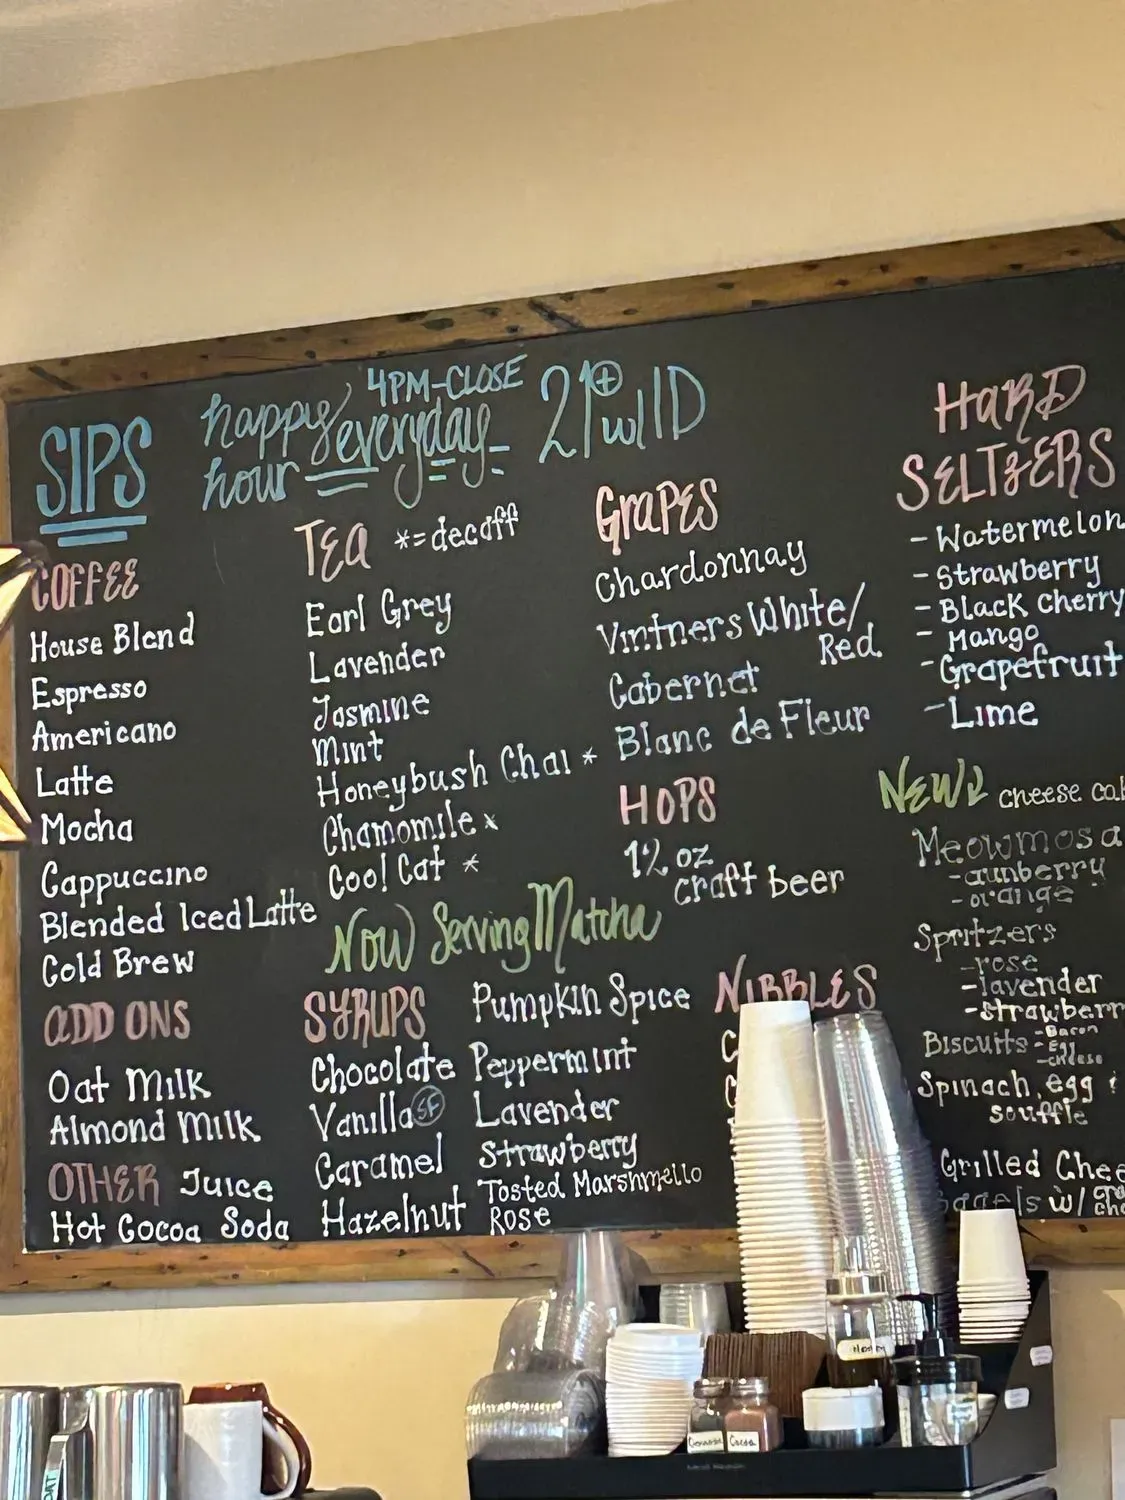 SIPS
happy hour everyday
4PM-CLOSE
21+ w/ ID
COFFEE
House Blend
Espresso
Americano
Latte
Mocha
Cappuccino
Blended Iced Latte
Cold Brew
ADD ONS
Oat Milk
Almond Milk
OTHER Juice
Hot Cocoa Soda
TEA *=decaff
Earl Grey
Lavender
Jasmine
Mint
Honeybush Chai *
Chamomile *
Cool Cat *
Now Serving Matcha
SYRUPS
Chocolate
Vanilla SF
Caramel
Hazelnut
Pumpkin Spice
Peppermint
Lavender
Strawberry
Tosted Marshmello
Rose
GRAPES
Chardonnay
Vintners White/
Red
Cabernet
Blanc de Fleur
HOPS
12 oz
craft beer
NIBBLES
HARD
SELTZERS
- Watermelon
- Strawberry
- Black Cherry
- Mango
- Grapefruit
- Lime
NEW cheese
Meowmosa
- orange
Spritzers
- rose
- lavender
Biscuits - Bacon
- Egg
- cheese
Spinach, egg
souffle
Grilled
w/
Cocoa